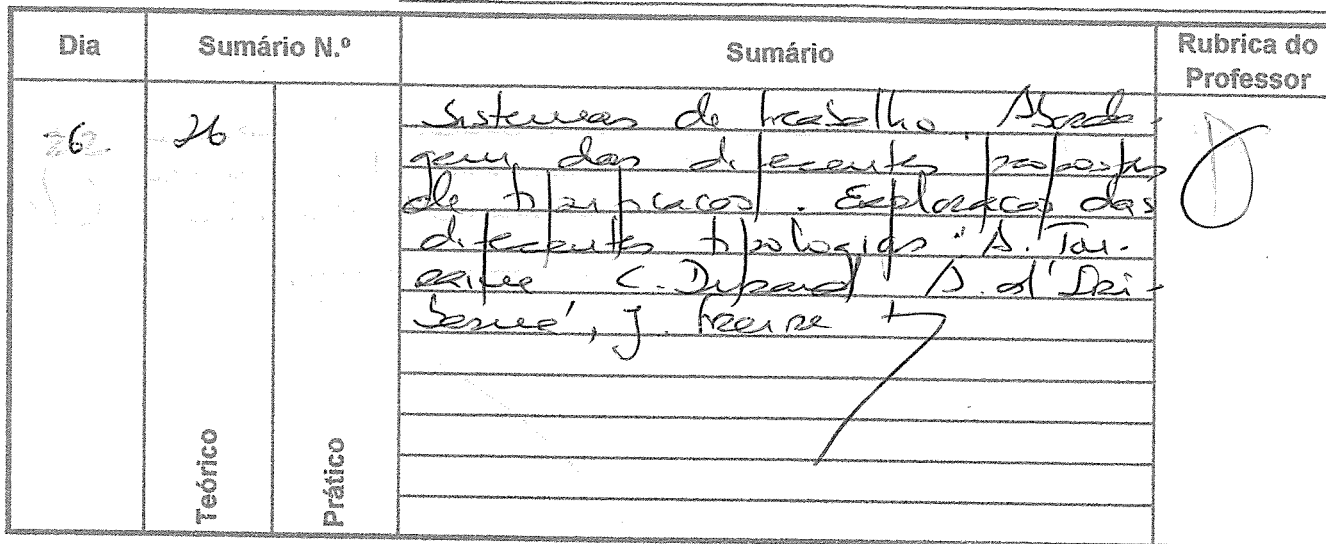 Dia Sumário N.º Sumário Rubrica do Professor
6 26 Sistemas de trabalho. Aborda-
gem das diferentes propostas
de tipificação. Exploração das
diferentes tipologias: A. Tou-
raine C. Durand A. d'Iri-
barne, J. Freire
Teórico Prático